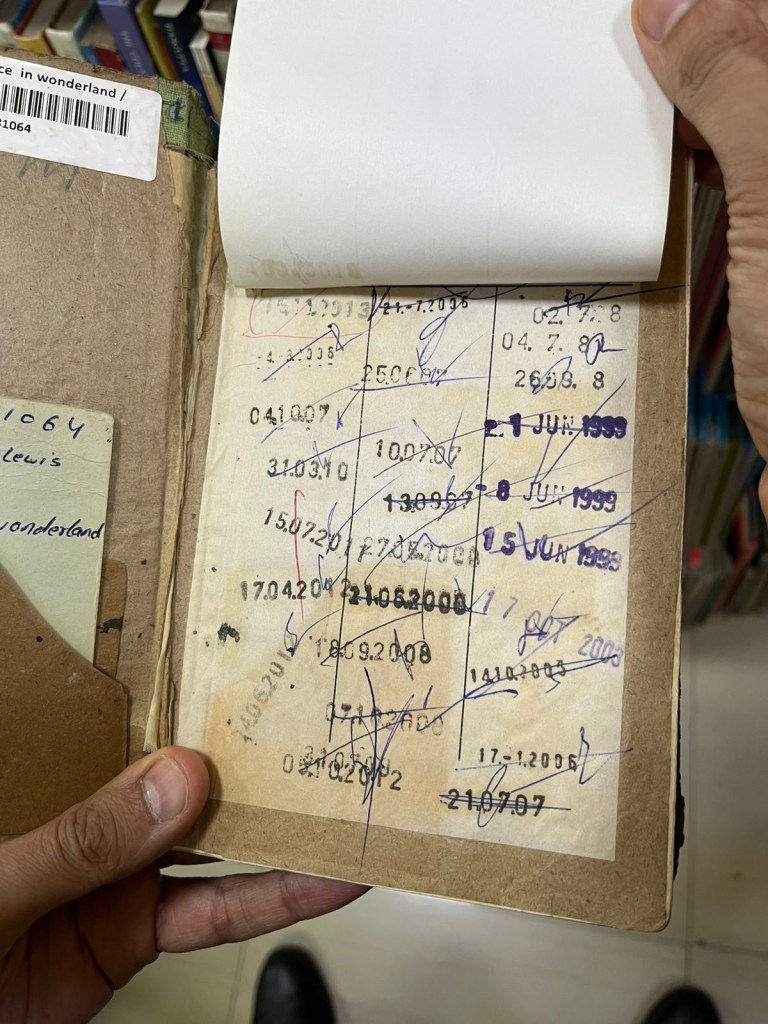 ce in wonderland /
31064
1064
Lewis
wonderland
15.11.2013
-4.-8.2006
04.10.07
31.03.10
15.07.2011
17.04.2012
14.06.2012
21.-7.2006
10.07.07
13.09.67
27.05.2008
21.06.2008
18.09.2008
2012
04. 7. 8
26.09. 8
21 JUN 1999
-8 JUN 1999
15 JUN 1999
17 OCT 2003
14.10.2005
17.-1.2006
21.07.07